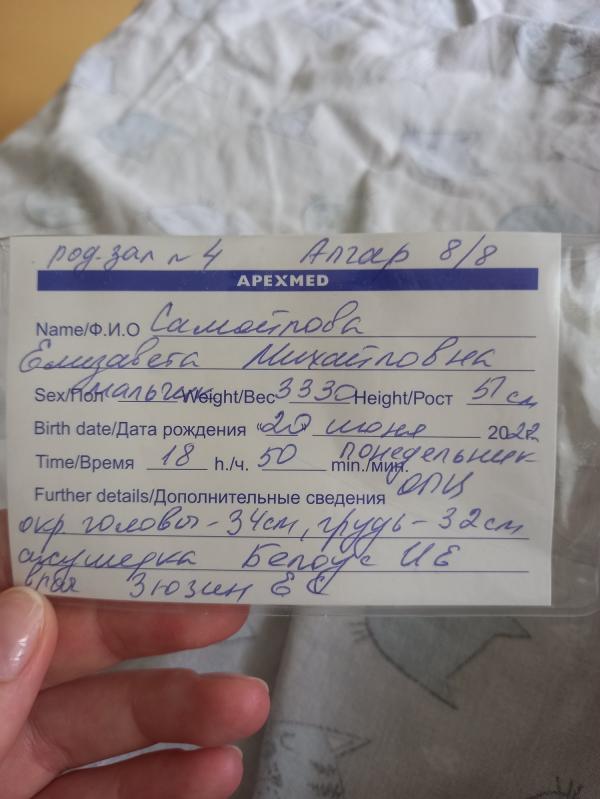 род. зал № 4 Апгар 8/8
APEXMED
Name/Ф.И.О Самойлова
Елизавета Михайловна
Sex/Пол мальчик Weight/Вес 3330 Height/Рост 51 см
Birth date/Дата рождения «20» июня 2022
понедельник
Time/Время 18 h./ч. 50 min./мин.
Further details/Дополнительные сведения ОПЦ
окр головы - 34 см, грудь - 32 см
акушерка Белоус И Е
врач Зюзин Е С